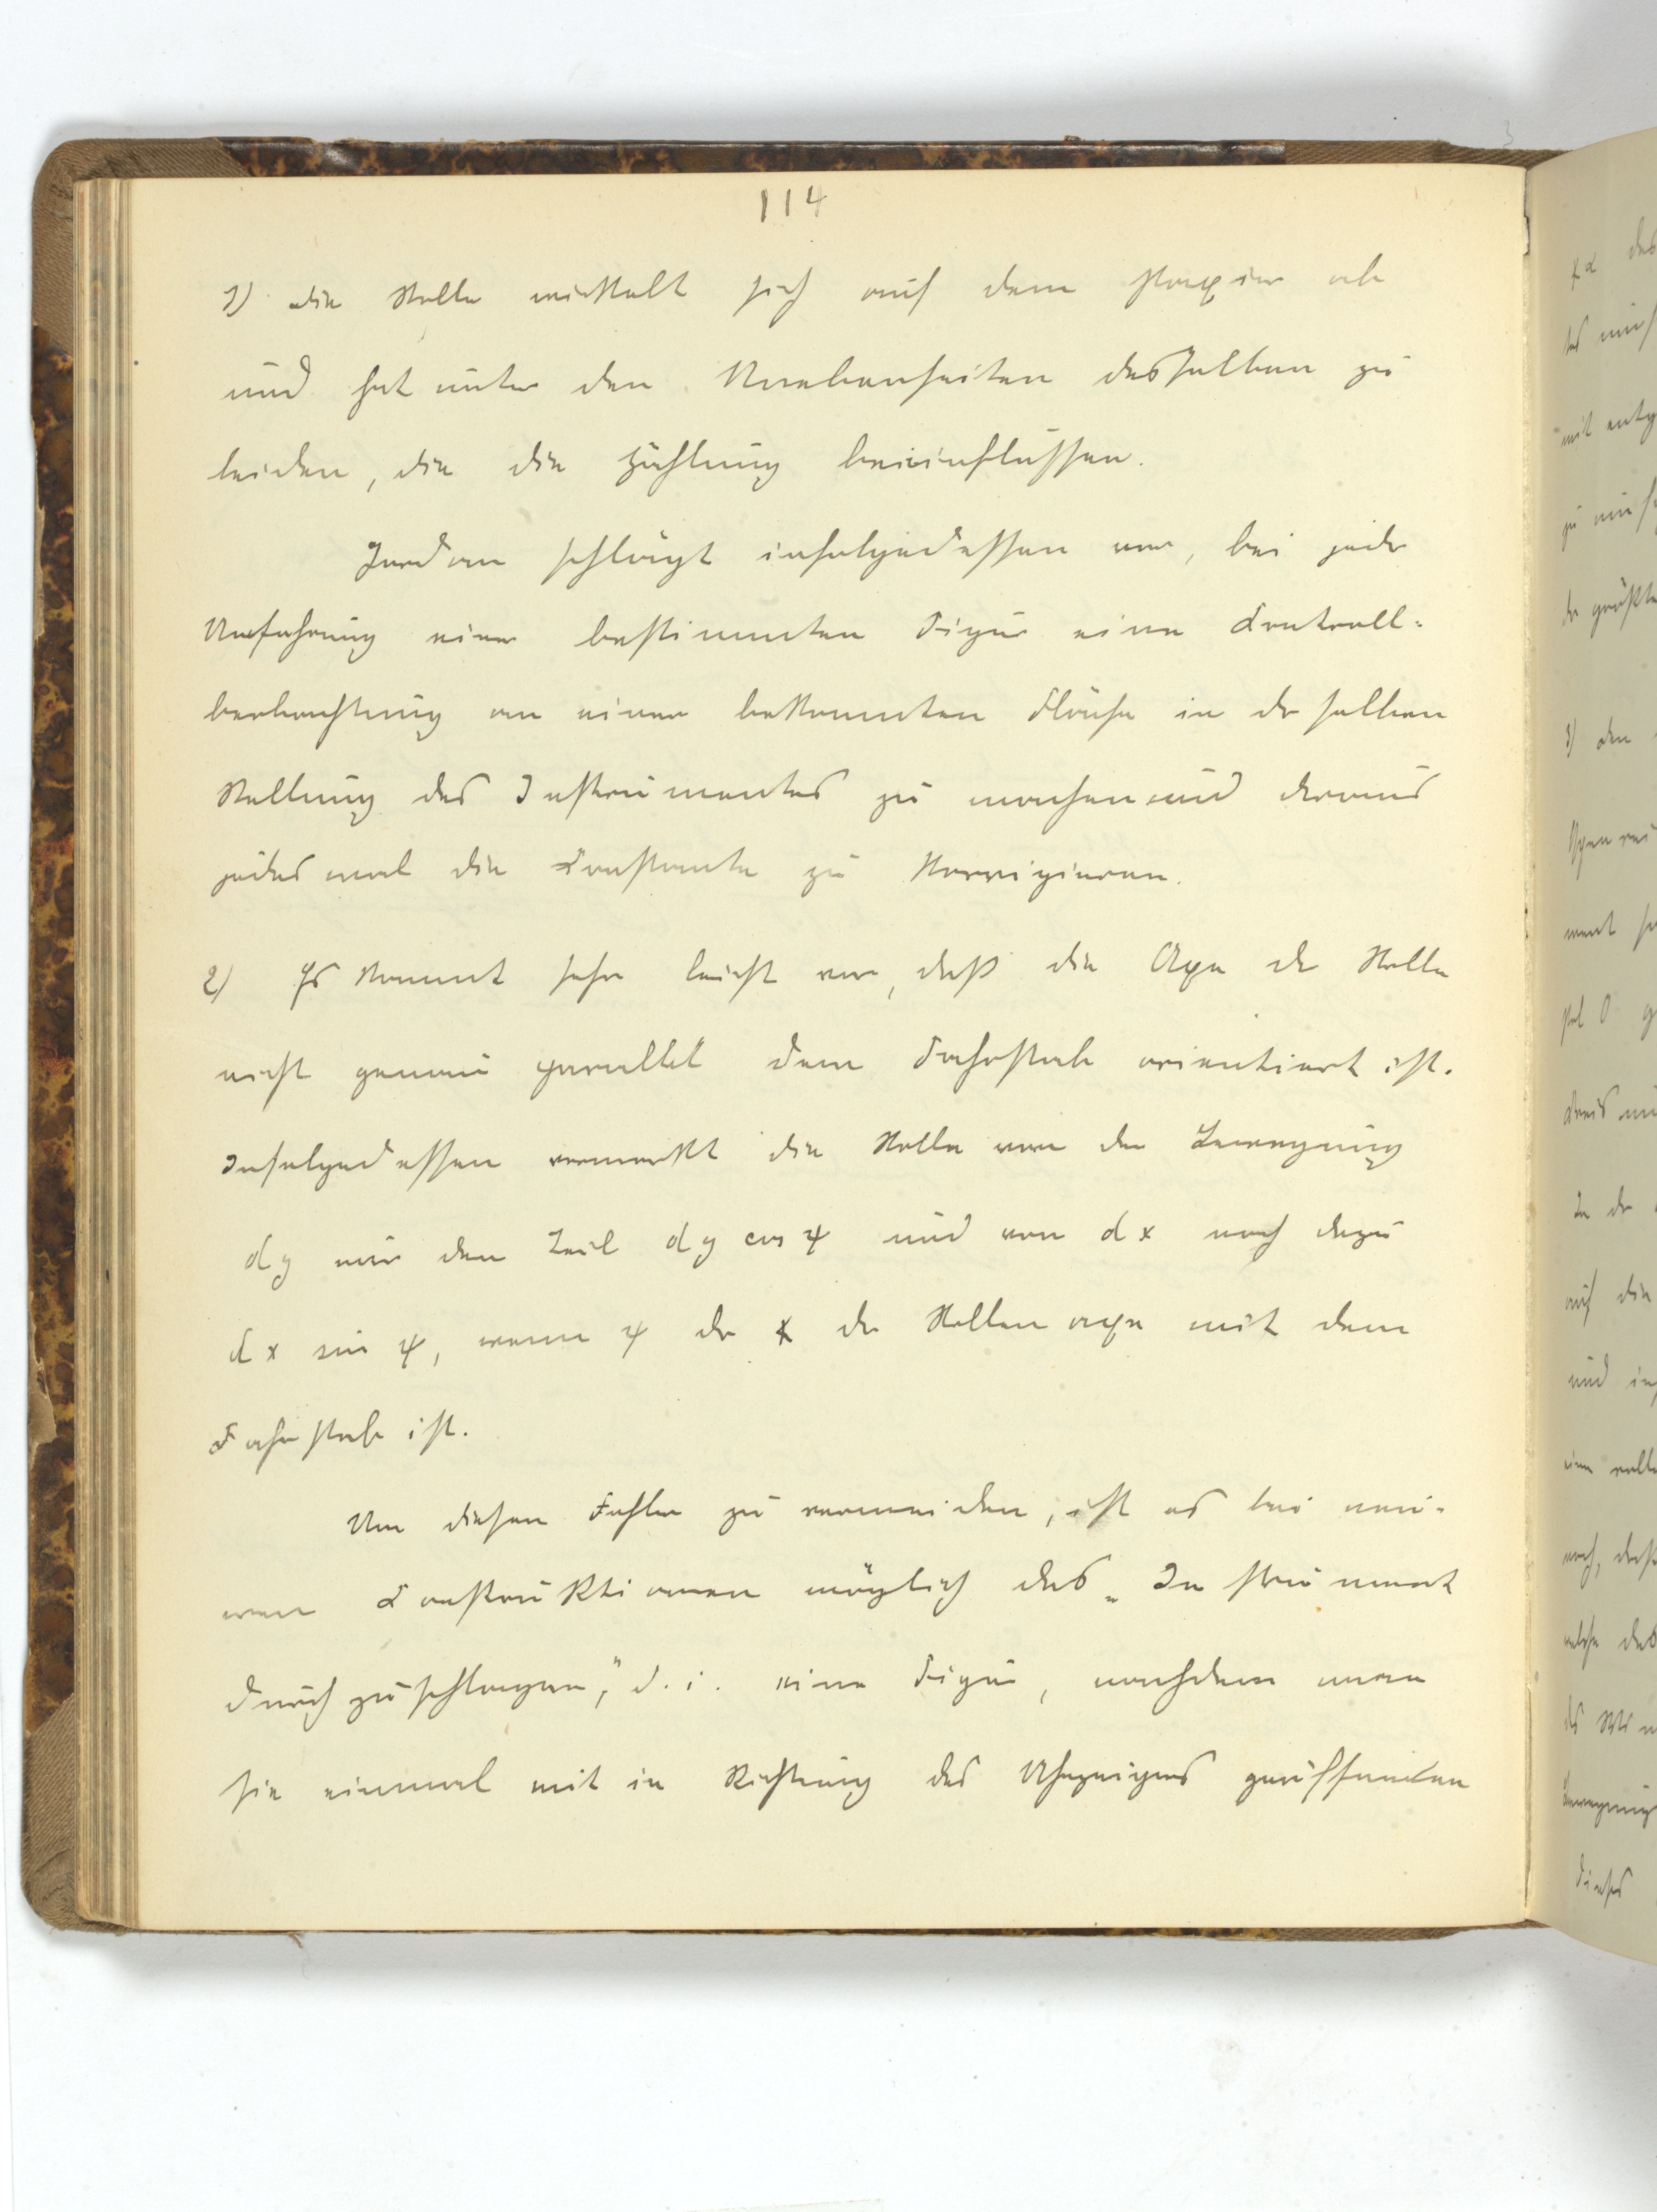 114
1) die Rolle wickelt sich auf dem Papier ab
und hat unter den Unebenheiten desselben zu
leiden, die die Zählung beeinflussen.
Jordan schlägt infolgedessen vor, bei jeder
Umfahrung einer bestimmten Figur eine Kontroll-
beobachtung an einer bekannten Fläche in derselben
Stellung des Instrumentes zu machen und daraus
jedesmal die Konstante zu korrigieren.
2) Es kommt sehr leicht vor, daß die Axe der Rolle
nicht genau parallel dem Fahrstab orientiert ist.
Infolgedessen vermerkt die Rolle von der Bewegung
dy nur den Teil dy cos ψ und von dx noch dazu
dx sin ψ, wenn ψ der ∢ der Rollenaxe mit dem
Fahrstab ist.
Um diesen Fehler zu vermeiden, ist es bei neu-
eren Konstruktionen möglich das „Instrument
durchzuschlagen," d. i. eine Figur, nachdem man
sie einmal mit in Richtung des Uhrzeigers